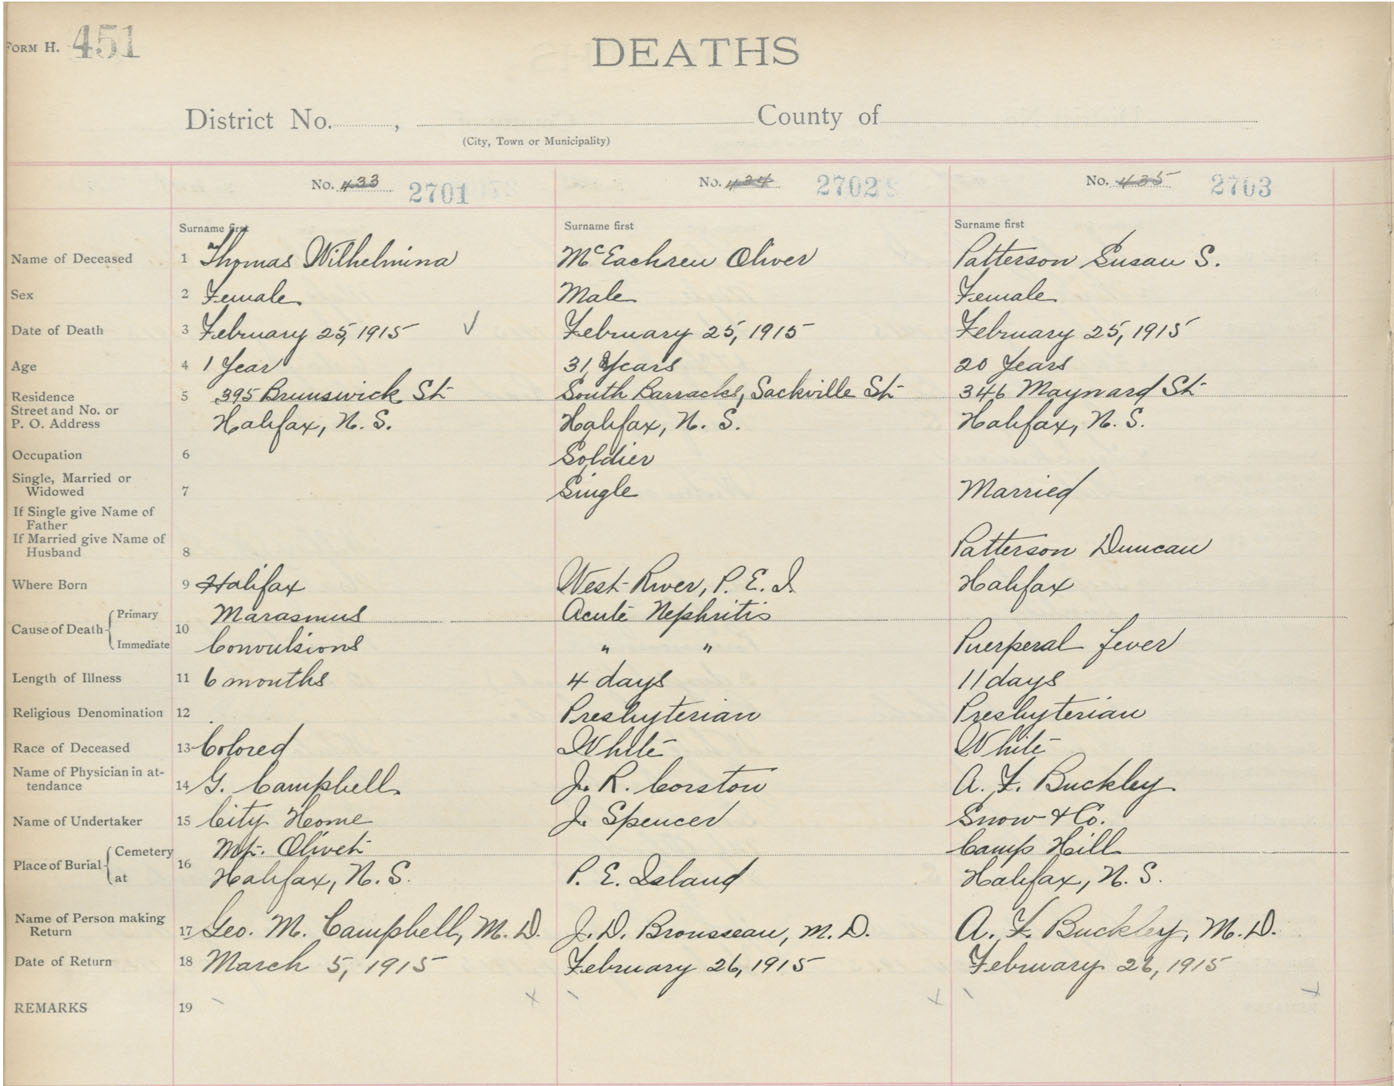 FORM H. 451
DEATHS
District No. , County of
(City, Town or Municipality)
No. 433 2701 No. 434 2702 No. 435 2703
Surname first Surname first Surname first
Name of Deceased 1 Thomas Wilhelmina McEachren Oliver Patterson Susan S.
Sex 2 Female Male Female
Date of Death 3 February 25, 1915 ✓ February 25, 1915 February 25, 1915
Age 4 1 Year 31 Years 20 Years
Residence 5 395 Brunswick St South Barracks, Sackville St 346 Maynard St
Street and No. or
P. O. Address Halifax, N. S. Halifax, N. S. Halifax, N. S.
Occupation 6 Soldier
Single, Married or
Widowed 7 Single Married
If Single give Name of
Father
If Married give Name of
Husband 8 Patterson Duncan
Where Born 9 Halifax West River, P. E. I. Halifax
Cause of Death 10 Primary Marasmus Acute Nephritis
Immediate Convulsions " " Puerperal fever
Length of Illness 11 6 months 4 days 11 days
Religious Denomination 12 Presbyterian Presbyterian
Race of Deceased 13 Colored White White
Name of Physician in at-
tendance 14 G. Campbell J. R. Corston A. F. Buckley
Name of Undertaker 15 City Home J. Spencer Snow & Co.
Place of Burial 16 Cemetery Mt. Olivet Camp Hill
at Halifax, N. S. P. E. Island Halifax, N. S.
Name of Person making
Return 17 Geo. M. Campbell, M. D. J. D. Brousseau, M. D. A. F. Buckley, M. D.
Date of Return 18 March 5, 1915 February 26, 1915 February 26, 1915
REMARKS 19